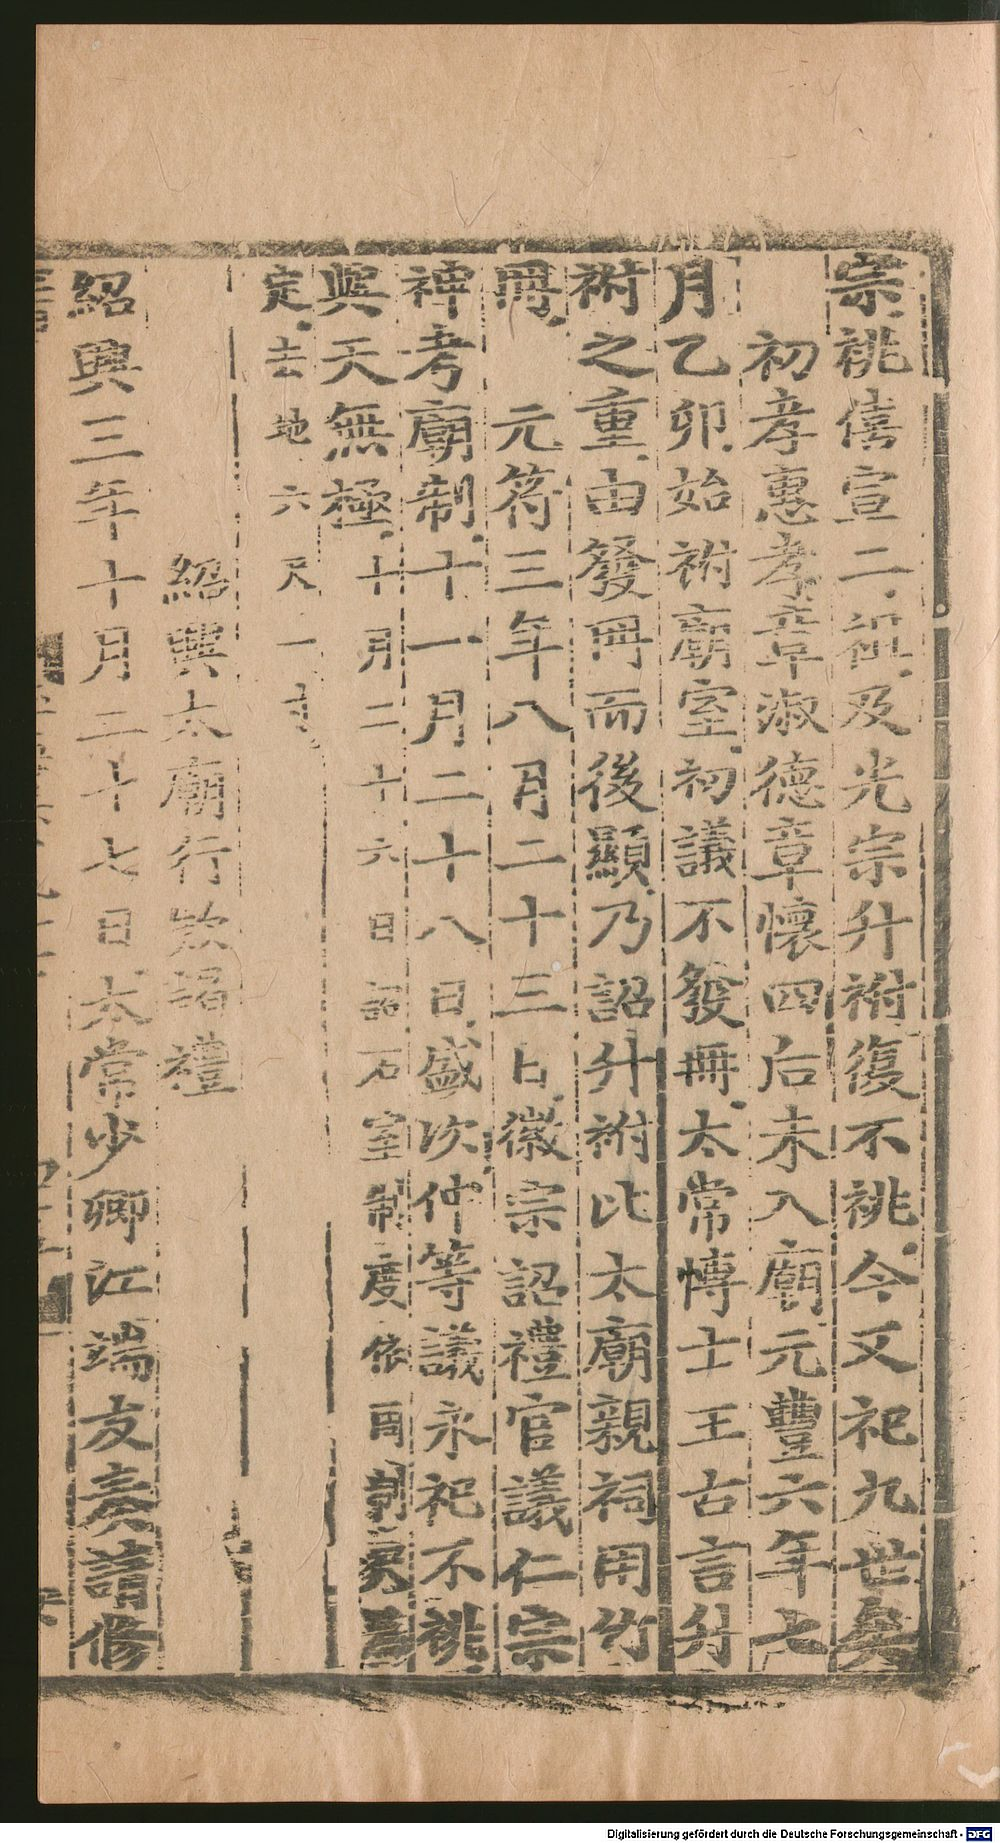 宗祧僖宣二祖及光宗升祔復不祧今又祀九世矣
初孝惠孝章淑德章懷四后未入廟元豐六年七
月乙卯始祔廟室初議不發冊太常博士王古言升
祔之重由發冊而後顯乃詔升祔比太廟親祠用竹
冊 元符三年八月二十三日徽宗詔禮官議仁宗
神考廟制十一月二十八日盛次仲等議永祀不祧
與天無極十月二十六日詔石室制度依用
定去地六尺一寸
紹興太廟行款謁禮
紹興三年十月二十七日太常少卿江端友奏請修
Digitalisierung gefördert durch die Deutsche Forschungsgemeinschaft - DFG